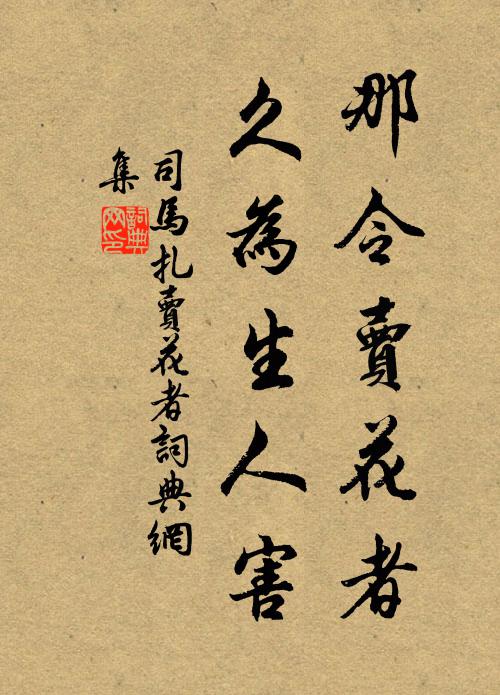 那令賣花者
久為生人害
司馬扎賣花者詞典網
集
詞典
网印